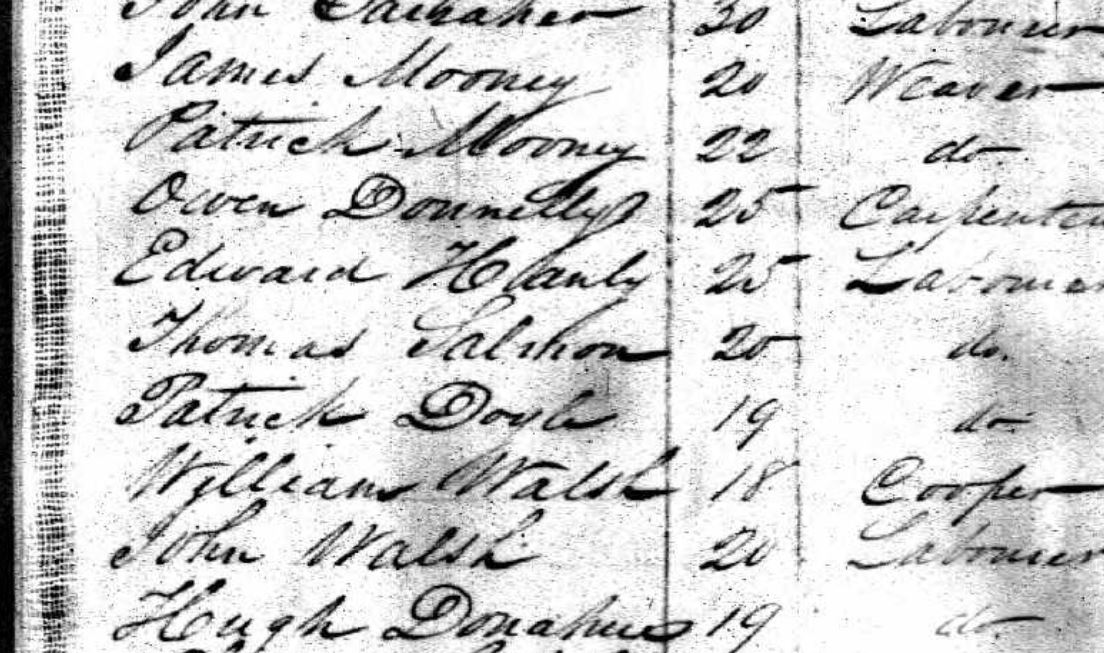 John 30 Labourer
James Mooney 20 Weaver
Patrick Mooney 22 do
Owen Donnelly 25 Carpenter
Edward Hanly 25 Labourer
Thomas Salmon 20 do.
Patrick Doyle 19 do
William Walsh 18 Cooper
John Walsh 20 Labourer
Hugh Donahue 19 do